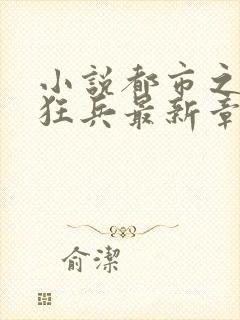 小說都市之
狂兵最新章
俞潔